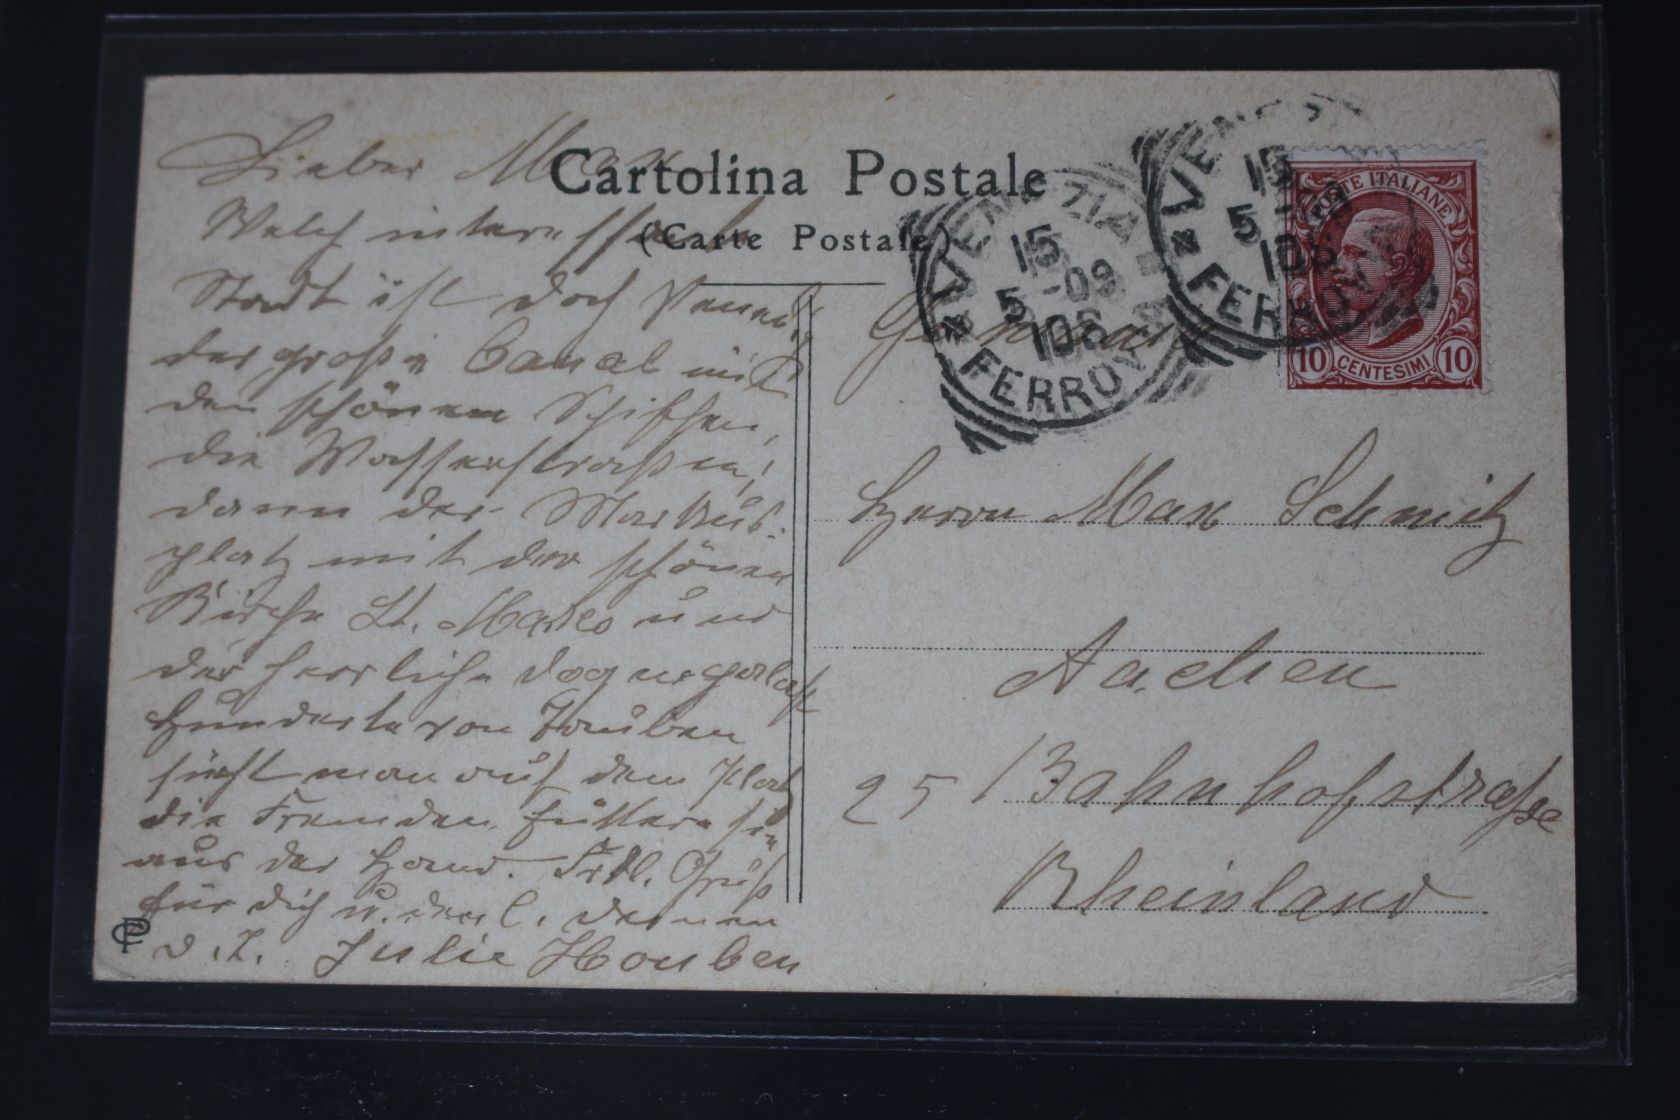 Cartolina Postale
(Carte Postale)
Lieber Max
Welch interessante
Stadt ist doch Venedig
der große Canal mit
den schönen Schiffen,
die Wasserstraßen,
dann der Markus-
platz mit der schönen
Kirche St. Marko und
der herrliche Dogenpalast
Hunderte von Tauben
sieht man auf dem Platz
die Fremden füttern sie
aus der Hand. Frdl. Gruß
für dich u. den l. deinen
d. T. Julie Houben
VENEZIA
15
5 -09
10S
FERROVIA
VENEZIA
15
5 -09
10S
FERROVIA
POSTE ITALIANE
10 CENTESIMI 10
Germania
Herrn Max Schmitz
Aachen
25 Bahnhofstraße
Rheinland